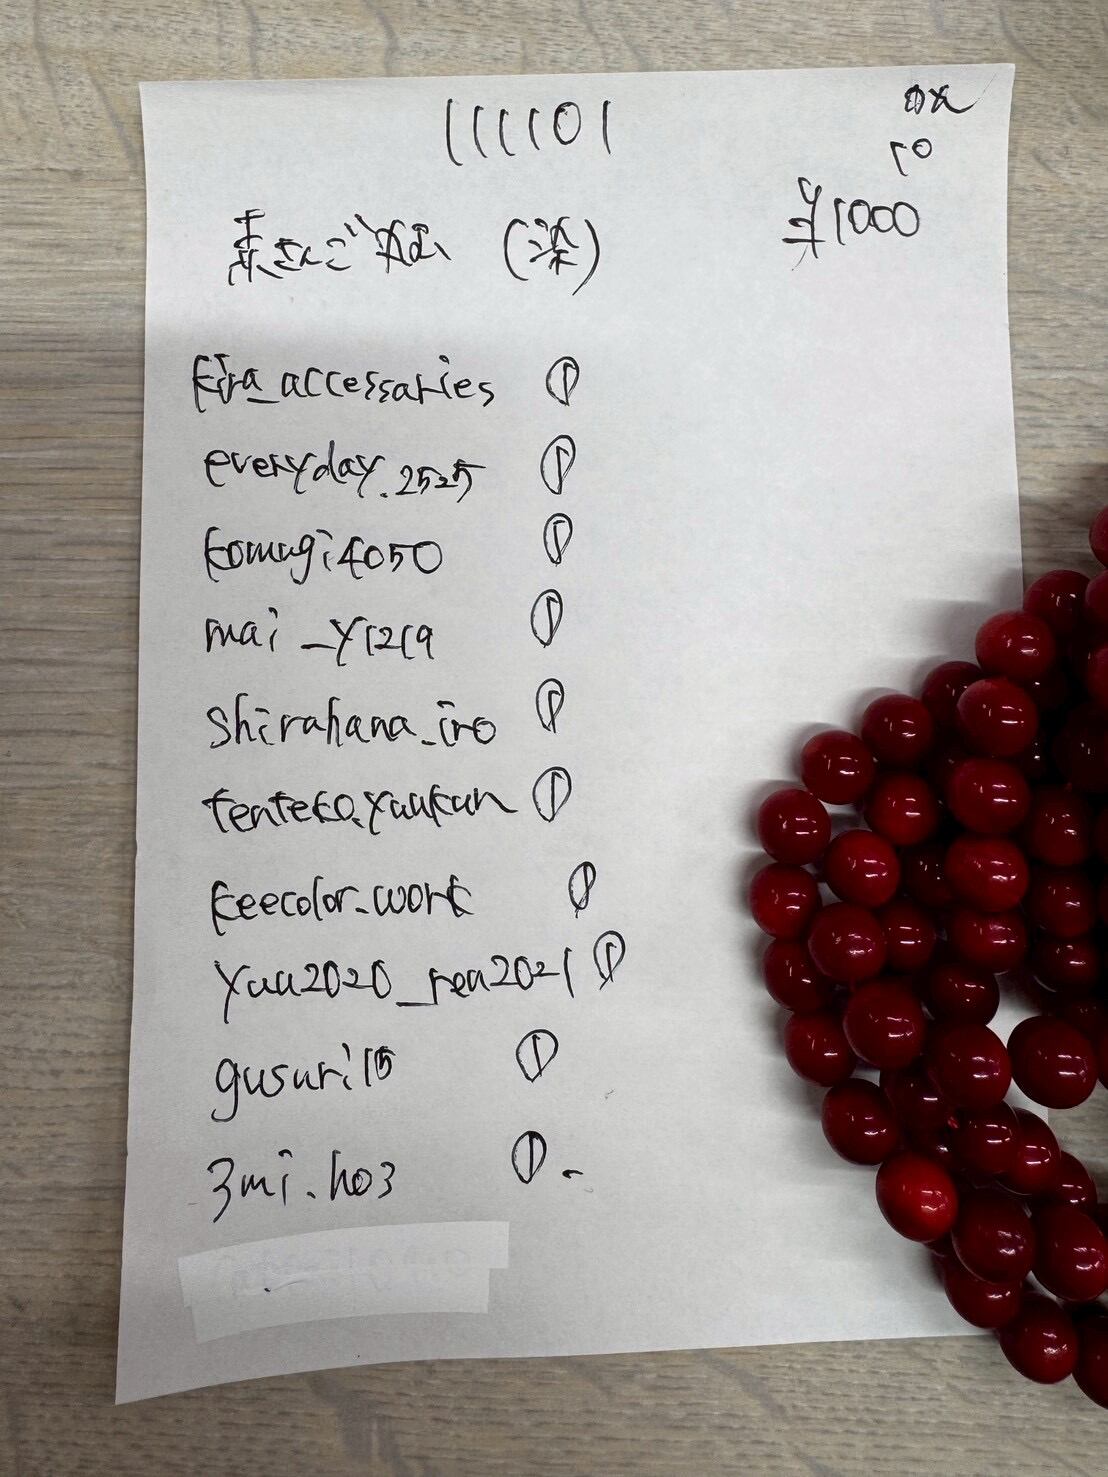 111101
10
¥1000
赤さんご (染)
kira_accessaries ①
everyday.2525 ①
komugi4050 ①
mai_y1219 ①
shirahana_iro ①
tenteko.yuukun ①
keecolor_work ①
yuu2020_rea2021 ①
gusuri15 ①
3mi.ho3 ①